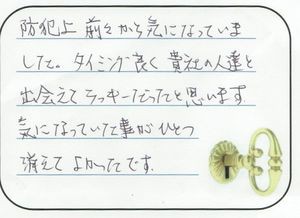 防犯上 前々から気になっていま
した。タイミング良く 貴社の人達と
出会えてラッキーだったと思います。
気になっていた事がひとつ
消えて よかったです。